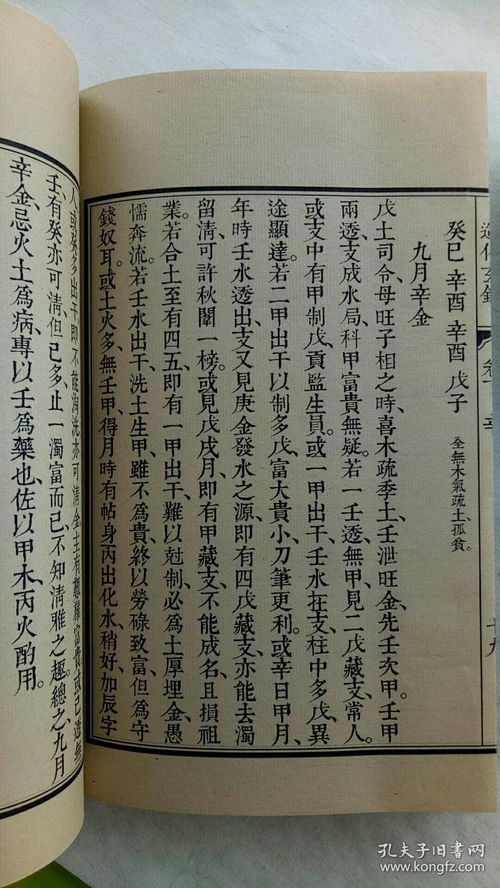 癸巳 辛酉 辛酉 戊子 全無木氣疏土、孤貧。
九月辛金
戊土司令、母旺子相之時、喜木疏季土、壬泄旺金、先壬次甲。壬甲
兩透、支成水局、科甲富貴無疑。若一壬透、無甲、見二戊藏支、常人。
或支中有甲制戊、貢監生員。或一甲出干、壬水在支、柱中多戊、異
途顯達。若二甲出干以制多戊、富大貴小、刀筆更利。或辛日甲月、
年時壬水透出、支又見庚金發水之源、即有四戊藏支、亦能去濁
留清、可許秋闈一榜。或見戊戌月、即有甲藏支、不能成名、且損祖
業。若合土至有四五、即有一甲出干、難以尅制、必爲土厚埋金、愚
懦奔流。若壬水出干、洗土生甲、雖不爲貴、終以勞碌致富、但爲守
錢奴耳。或土火多、無壬甲、得月時有帖身丙出化水、稍好、加辰字
人或癸多出干、即不能淘洗、亦可清金、主有
壬有癸亦可清、但己多、止一濁富而已、不知清雅之趣。總之、九月
辛金、忌火土爲病、專以壬爲藥也、佐以甲木丙火酌用。
孔夫子旧書网
www.kongfz.com